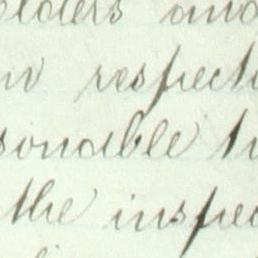 elders and
respecti
sonable ti
the inspec